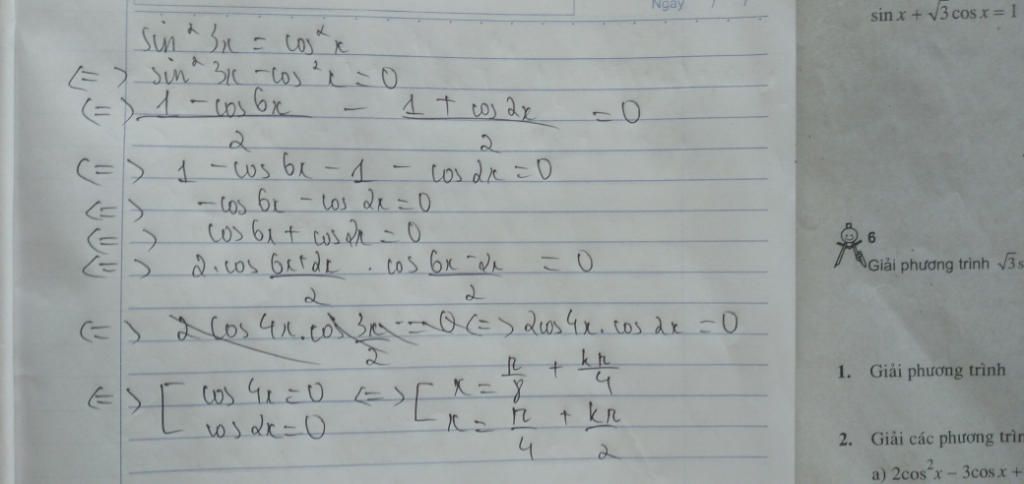 Ngày / /
sin² 3x = cos² x
<=> sin² 3x - cos² x = 0
<=> (1 - cos 6x)/2 - (1 + cos 2x)/2 = 0
<=> 1 - cos 6x - 1 - cos 2x = 0
<=> - cos 6x - cos 2x = 0
<=> cos 6x + cos 2x = 0
<=> 2 . cos (6x + 2x)/2 . cos (6x - 2x)/2 = 0
<=> 2 cos 4x . cos 3x/2 = 0 <=> 2 cos 4x . cos 2x = 0
<=> [ cos 4x = 0 <=> [ x = π/8 + kπ/4
cos 2x = 0 x = π/4 + kπ/2
sin x + √3 cos x = 1
6
Giải phương trình √3 s
1. Giải phương trình
2. Giải các phương trìn
a) 2cos²x – 3cosx +